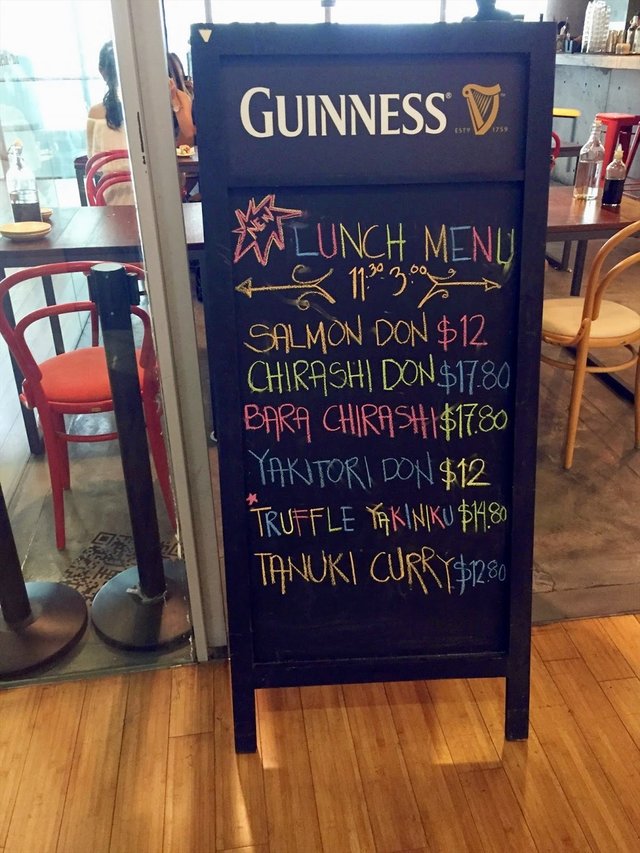 GUINNESS®
ESTD 1759
NEW
LUNCH MENU
11:30 - 3:00
SALMON DON $12
CHIRASHI DON $17.80
BARA CHIRASHI $17.80
YAKITORI DON $12
TRUFFLE YAKINIKU $14.80
TANUKI CURRY $12.80